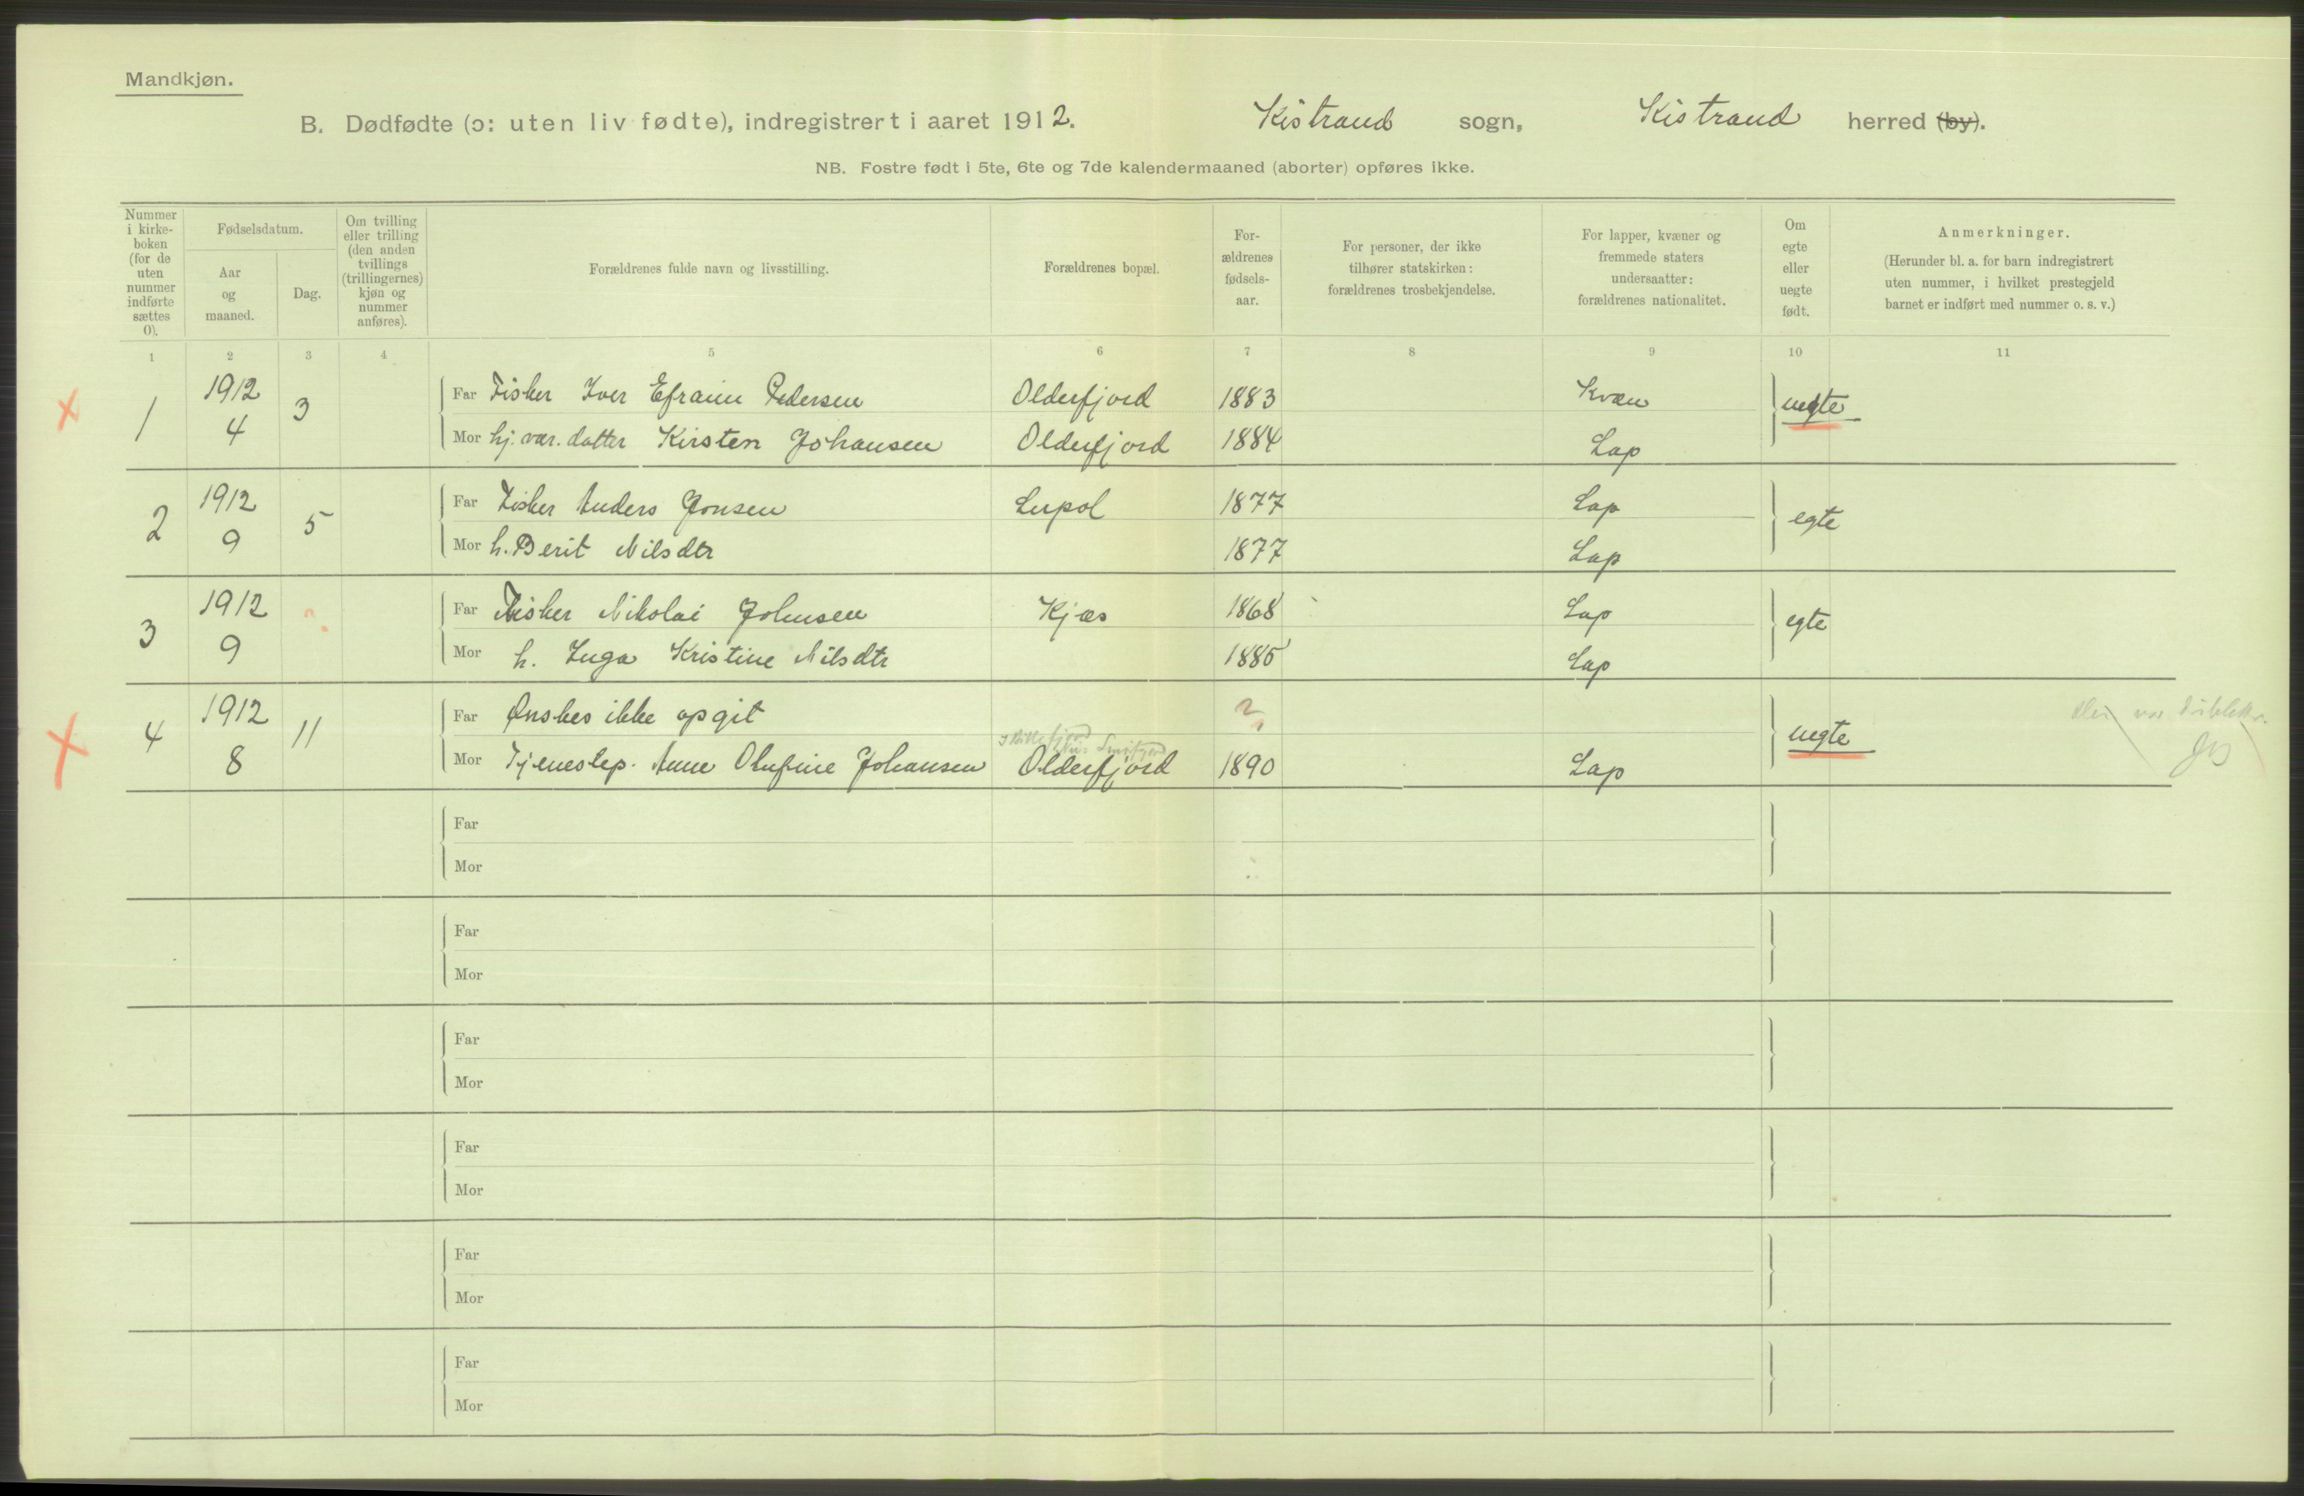 Mandkjøn.
B. Dødfødte (ɔ: uten liv fødte), indregistrert i aaret 1912. Kistrand sogn, Kistrand herred (by).
NB. Fostre født i 5te, 6te og 7de kalendermaaned (aborter) opføres ikke.
Nummer
i kirke-
boken
(for de
uten
nummer
indførte
sættes
0).
Fødselsdatum.
Aar
og
maaned.
Dag.
Om tvilling
eller trilling
(den anden
tvillings
(trillingernes)
kjøn og
nummer
anføres).
Forældrenes fulde navn og livsstilling.
Forældrenes bopæl.
For-
ældrenes
fødsels-
aar.
For personer, der ikke
tilhører statskirken:
forældrenes trosbekjendelse.
For lapper, kvæner og
fremmede staters
undersaatter:
forældrenes nationalitet.
Om
egte
eller
uegte
født.
Anmerkninger.
(Herunder bl. a. for barn indregistrert
uten nummer, i hvilket prestegjeld
barnet er indført med nummer o. s. v.)
1 2 3 4 5 6 7 8 9 10 11
1 1912 4 3
Far Fisker Iver Efraim Pedersen Olderfjord 1883 Kvæn uegte
Mor hj. vær. datter Kirsten Johansen Olderfjord 1884 Lap
2 1912 9 5
Far Fisker Anders Jonsen Lerpol 1877 Lap egte
Mor h. Berit Nilsdtr 1877 Lap
3 1912 9 ?
Far Fisker Nikolai Johnsen Kjæs 1868 Lap egte
Mor h. Inga Kristine Nilsdtr 1885 Lap
4 1912 8 11
Far Ønskes ikke opgit ? uegte
Mor Tjenestep. Anne Olufine Johansen Olderfjord 1890 Lap
Far
Mor
Far
Mor
Far
Mor
Far
Mor
Far
Mor
Far
Mor